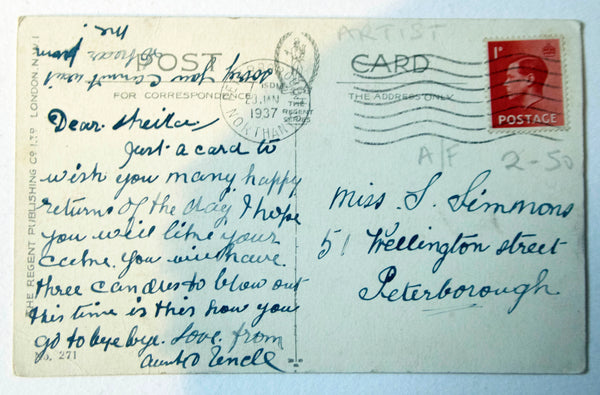 POST CARD
FOR CORRESPONDENCE
THE ADDRESS ONLY
THE REGENT PUBLISHING CO LTD LONDON N.W.1
No. 271
THE
REGENT
SERIES
ARTIST
A/F
2-50
1937
NORTHAN
1D
POSTAGE
sorry you cannot
Dear Sheila
Just a card to
wish you many happy
returns of the day I hope
you will like your
cake. You will have
three candles to blow out
this time is this how you
go to bye bye. Love from
Aunt & Uncle
Miss S. Simmons
51 Wellington street
Peterborough